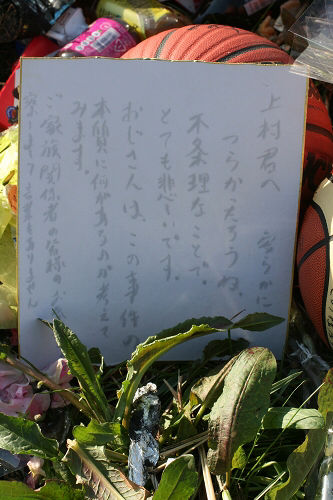 上村君へ 安らかに
つらかったろうね。
不条理なことで。
とても悲しいです。
おじさんは、この事件の
本質に何があるのか考えて
みます。
ご家族関係者の皆様の心
察しますと言葉もありません